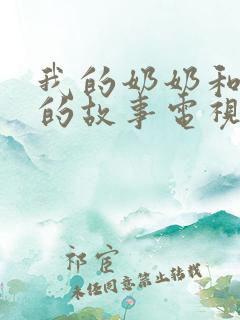 我的奶奶和
的故事电视
祁宦
未经同意禁止转载